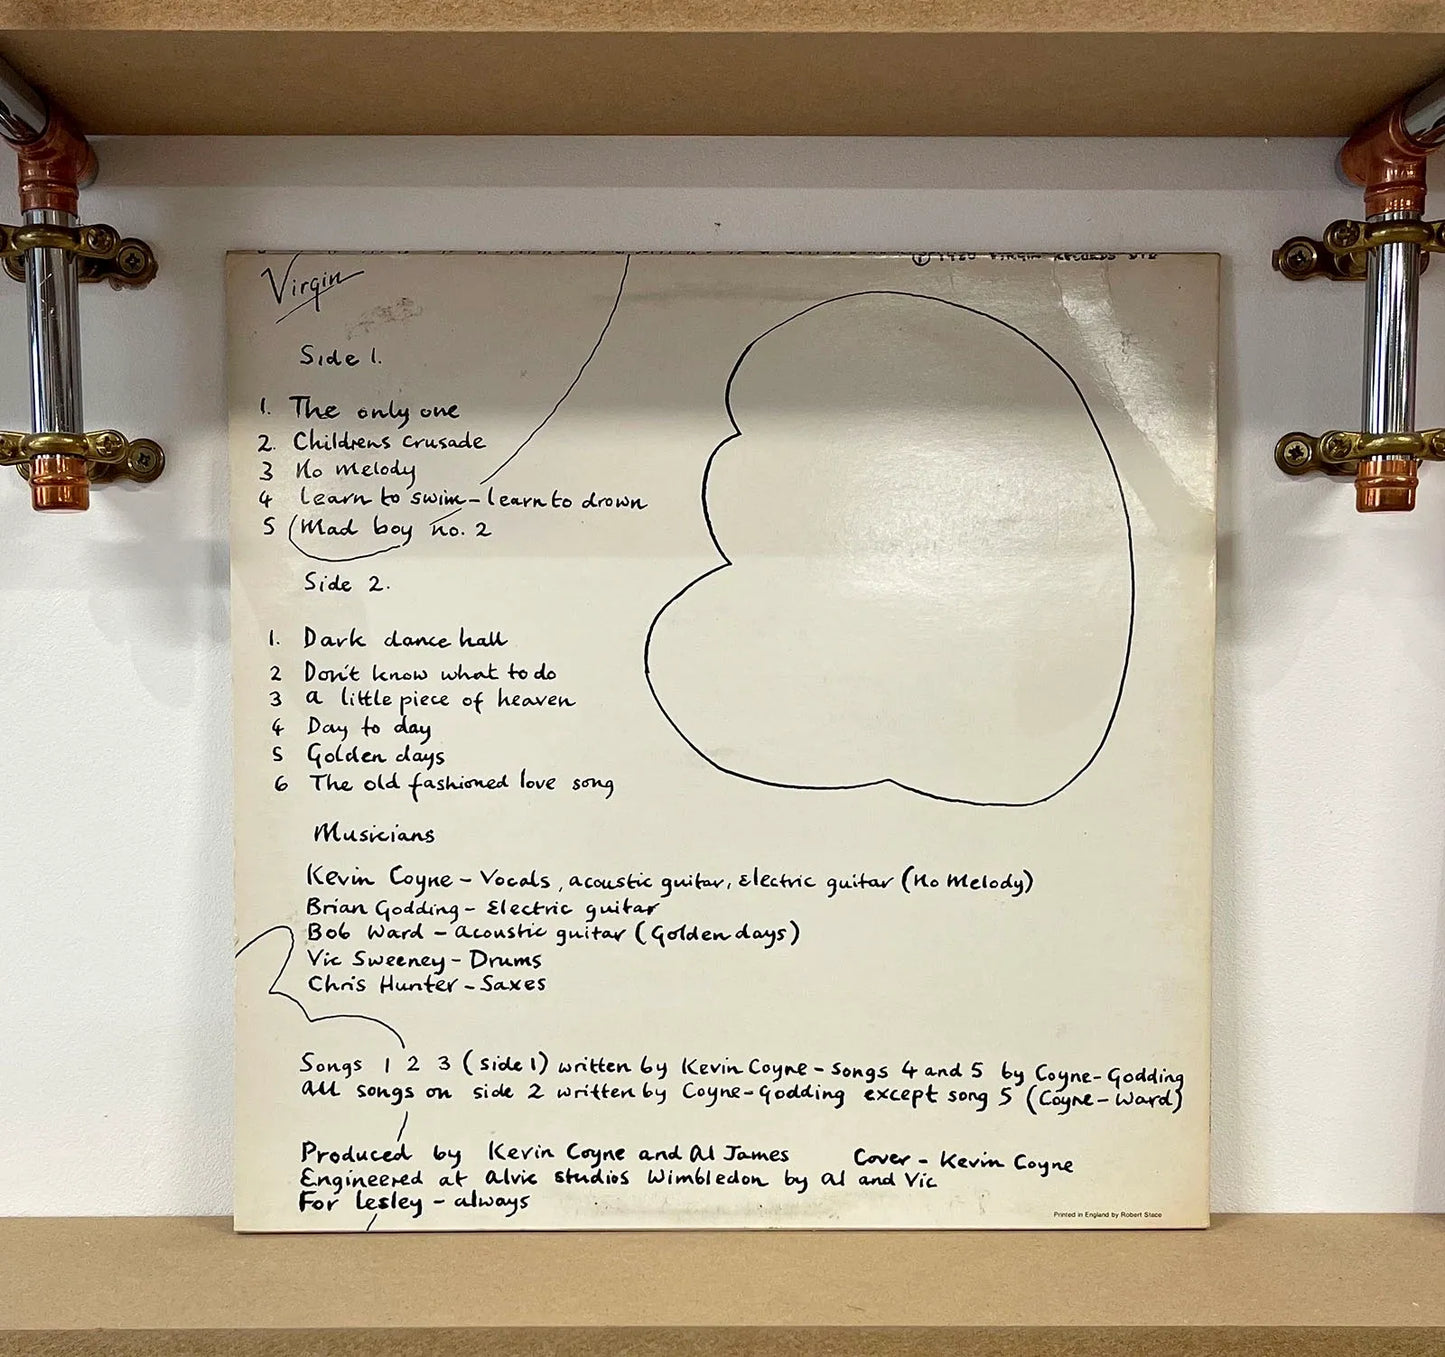 ℗ 1980 VIRGIN RECORDS LTD
Virgin
Side 1.
1. The only one
2. Childrens crusade
3 No melody
4 learn to swim - learn to drown
5 Mad boy no. 2
Side 2.
1. Dark dance hall
2 Don't know what to do
3 a little piece of heaven
4 Day to day
5 Golden days
6 The old fashioned love song
Musicians
Kevin Coyne - Vocals, acoustic guitar, Electric guitar (No Melody)
Brian Godding - Electric guitar
Bob Ward - acoustic guitar (Golden days)
Vic Sweeney - Drums
Chris Hunter - Saxes
Songs 1 2 3 (side 1) written by Kevin Coyne - songs 4 and 5 by Coyne - Godding
all songs on side 2 written by Coyne - Godding except song 5 (Coyne - Ward)
Produced by Kevin Coyne and Al James Cover - Kevin Coyne
Engineered at Alvic studios Wimbledon by al and Vic
For Lesley - always
Printed in England by Robert Stace